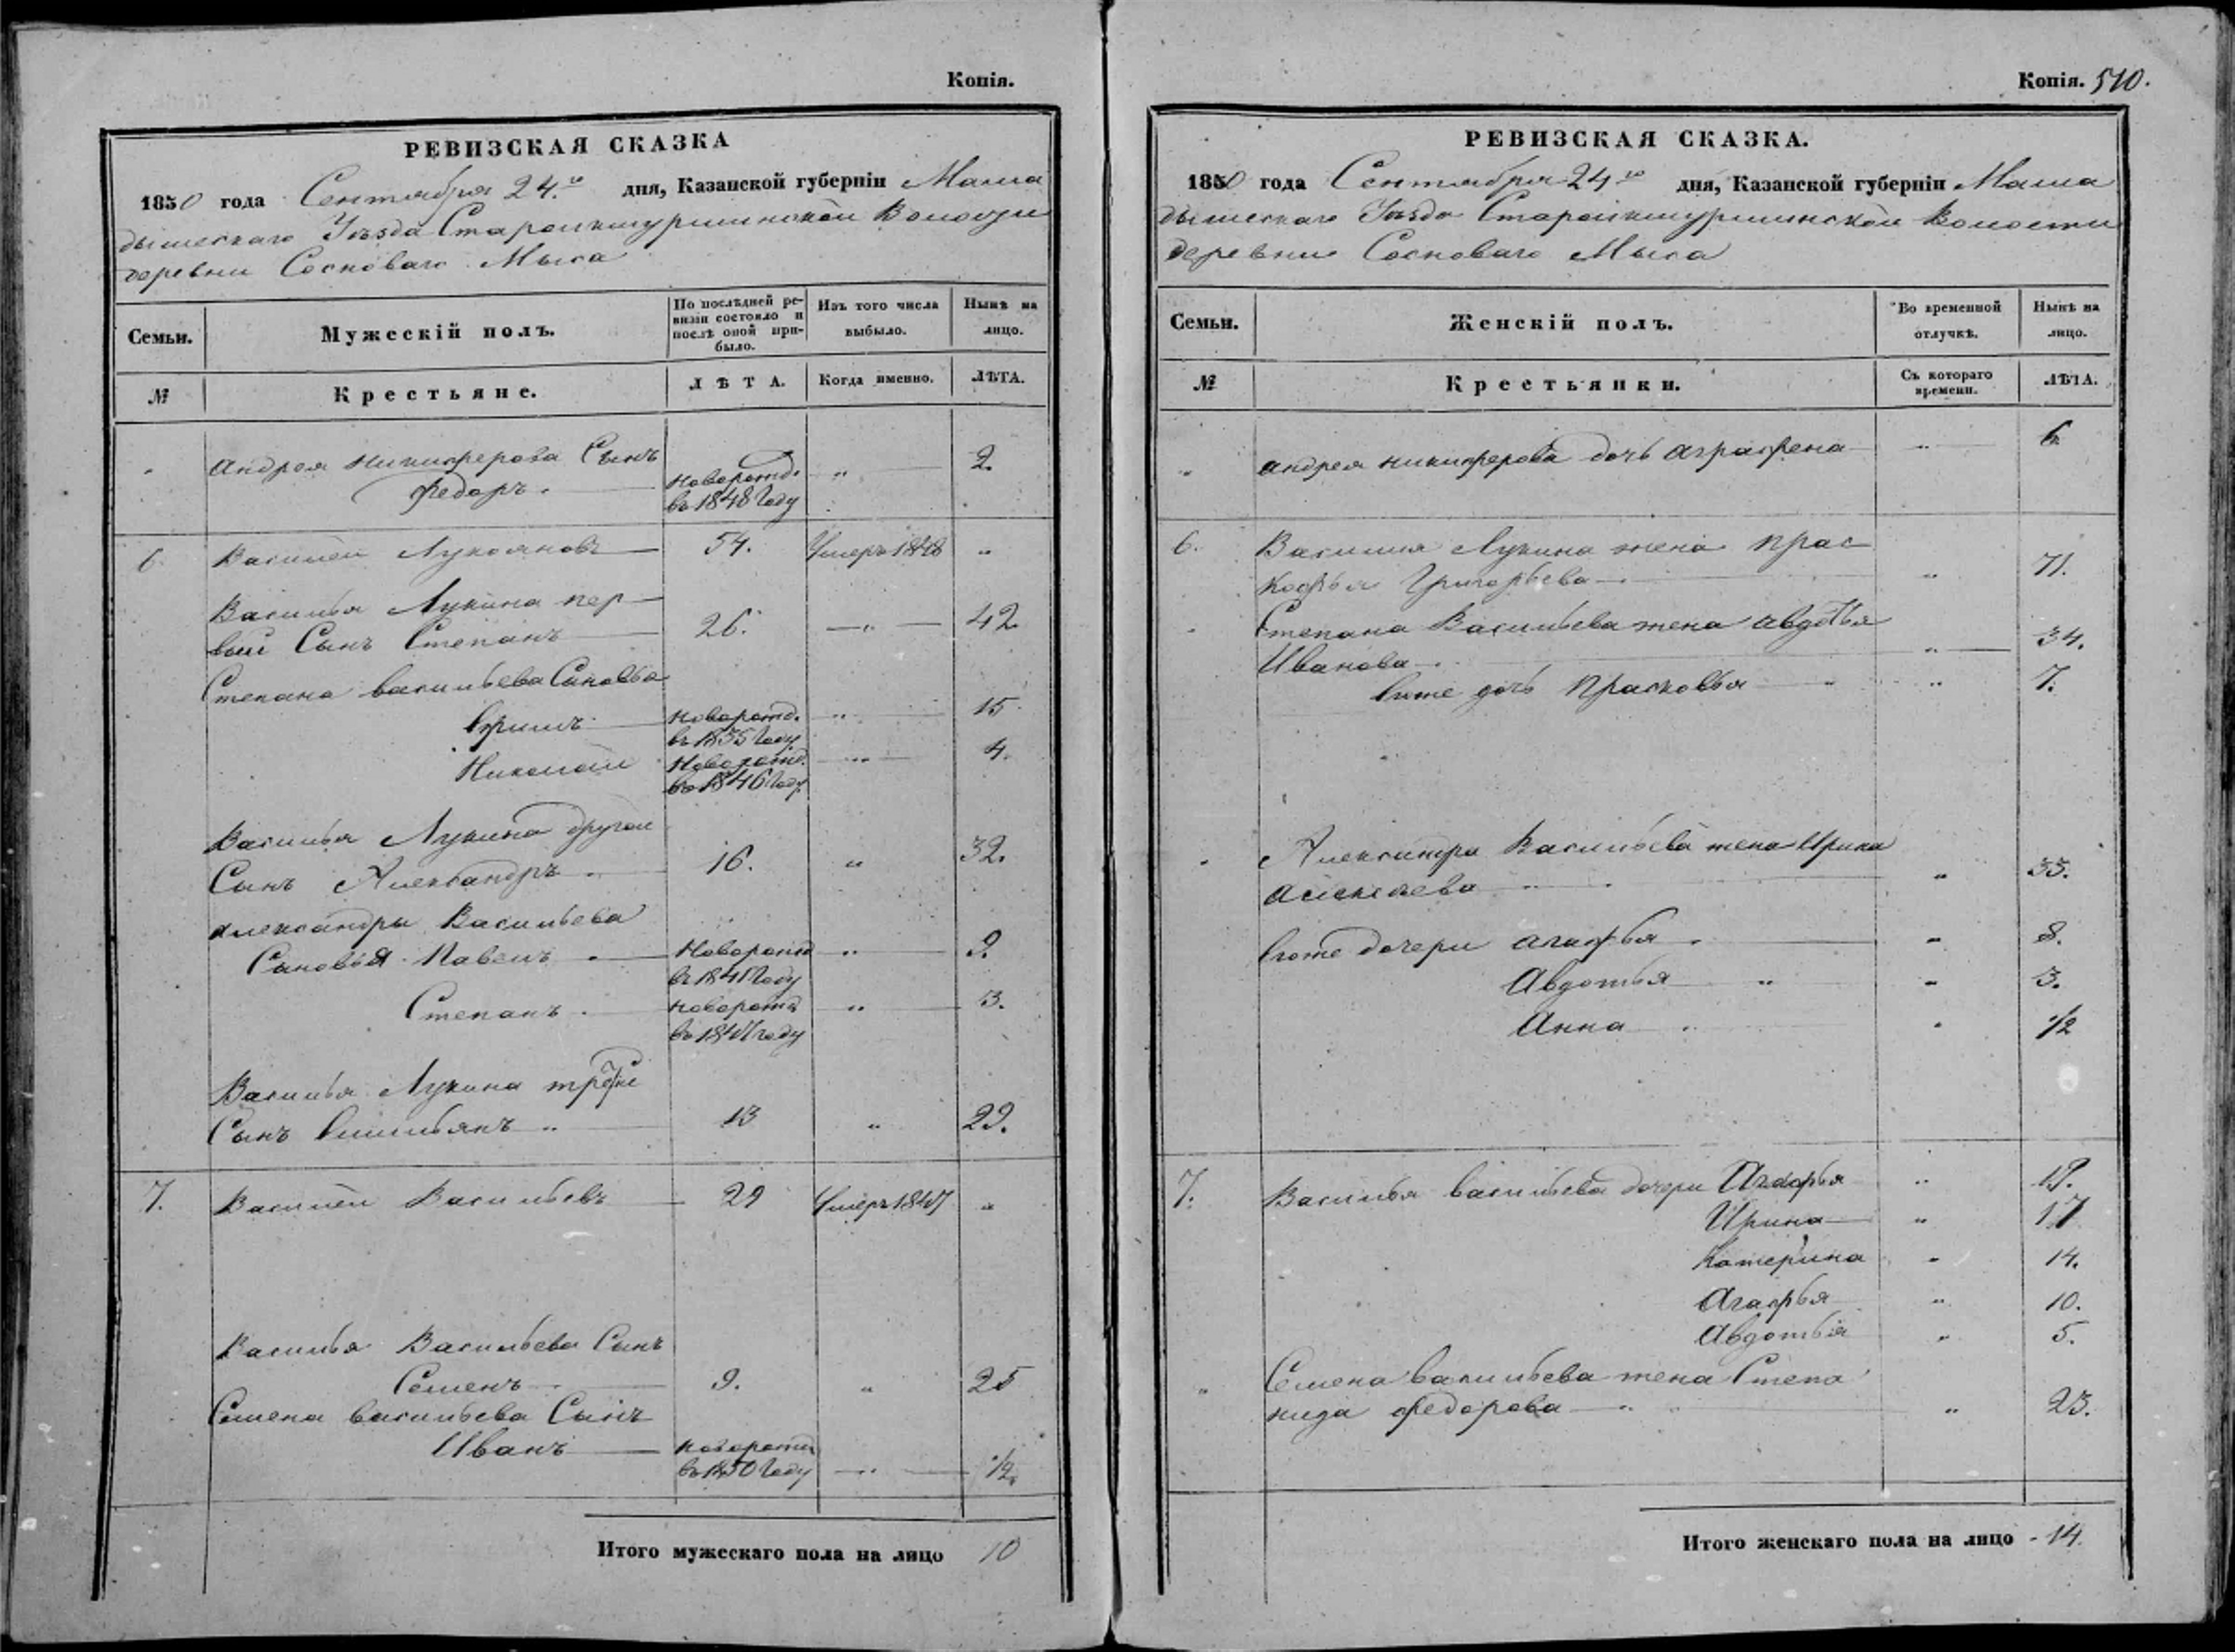 Копія.
РЕВИЗСКАЯ СКАЗКА
1850 года Сентября 24.го дня, Казанской губерніи Мама
дышескаго Уѣзда Староикшурминской Волости
деревни Сосноваго Мыса
Семьи.
Мужескій полъ.
По послѣдней ре-
визіи состояло и
послѣ оной при-
было.
Изъ того числа
выбыло.
Нынѣ на
лицо.
№
Крестьяне.
ЛѢТА.
Когда именно.
ЛѢТА.
Андрея Никифорова Сынъ
Федоръ. Новорожд. „ 2.
въ 1848 Году
6. Василей Лукояновъ 54. Умеръ 1848 „
Василья Лукина пер
вый Сынъ Степанъ 26. „ 42
Степана васильева Сыновья
Ефимъ Новорожд. „ 15
въ 1835 Году
Николай Новорожд. „ 4.
въ 1846 Году
Василья Лукина другой
Сынъ Александръ 16. „ 32.
Александры Васильева
Сыновья Павелъ Новорожд „ 9.
въ 1841 Году
Степанъ новорожд „ 3.
въ 1847 году
Василья Лукина третіе
Сынъ Емильянъ 13 „ 29.
7. Василей Васильевъ 29 Умеръ 1847 „
Василья Васильева Сынъ
Семенъ 9. „ 25
Семена васильева Сынъ
Иванъ новорожд
въ 1850 Году „ 1/2.
Итого мужескаго пола на лицо 10
Копія. 510.
РЕВИЗСКАЯ СКАЗКА.
1850 года Сентября 24го дня, Казанской губерніи Мама
дышескаго Уѣзда Староикшурминской Волости
деревни Сосноваго Мыса
Семьи.
Женскій полъ.
Во временной
отлучкѣ.
Нынѣ на
лицо.
№
Крестьянки.
Съ котораго
времени.
ЛѢТА.
„ андрея никиферова дочь аграфена „ 6
6. Василия Лукина жена прас
кофья Григорьева „ 71.
Степана Васильева жена авдотья
Иванова „ 34.
Ево же дочь Прасковья „ 7.
Александра Васильева жена Ирина
Алексѣева „ 33.
Ево же дочери агафья „ 8.
Авдотья „ 3.
Анна „ 1/2
7. Василья васильева дочери Агафья „ 19.
Ирина „ 17
Катерина „ 14.
Агафья „ 10.
Авдотья „ 5.
„ Семена васильева жена Степа
нида федорова „ 23.
Итого женскаго пола на лицо - 14.